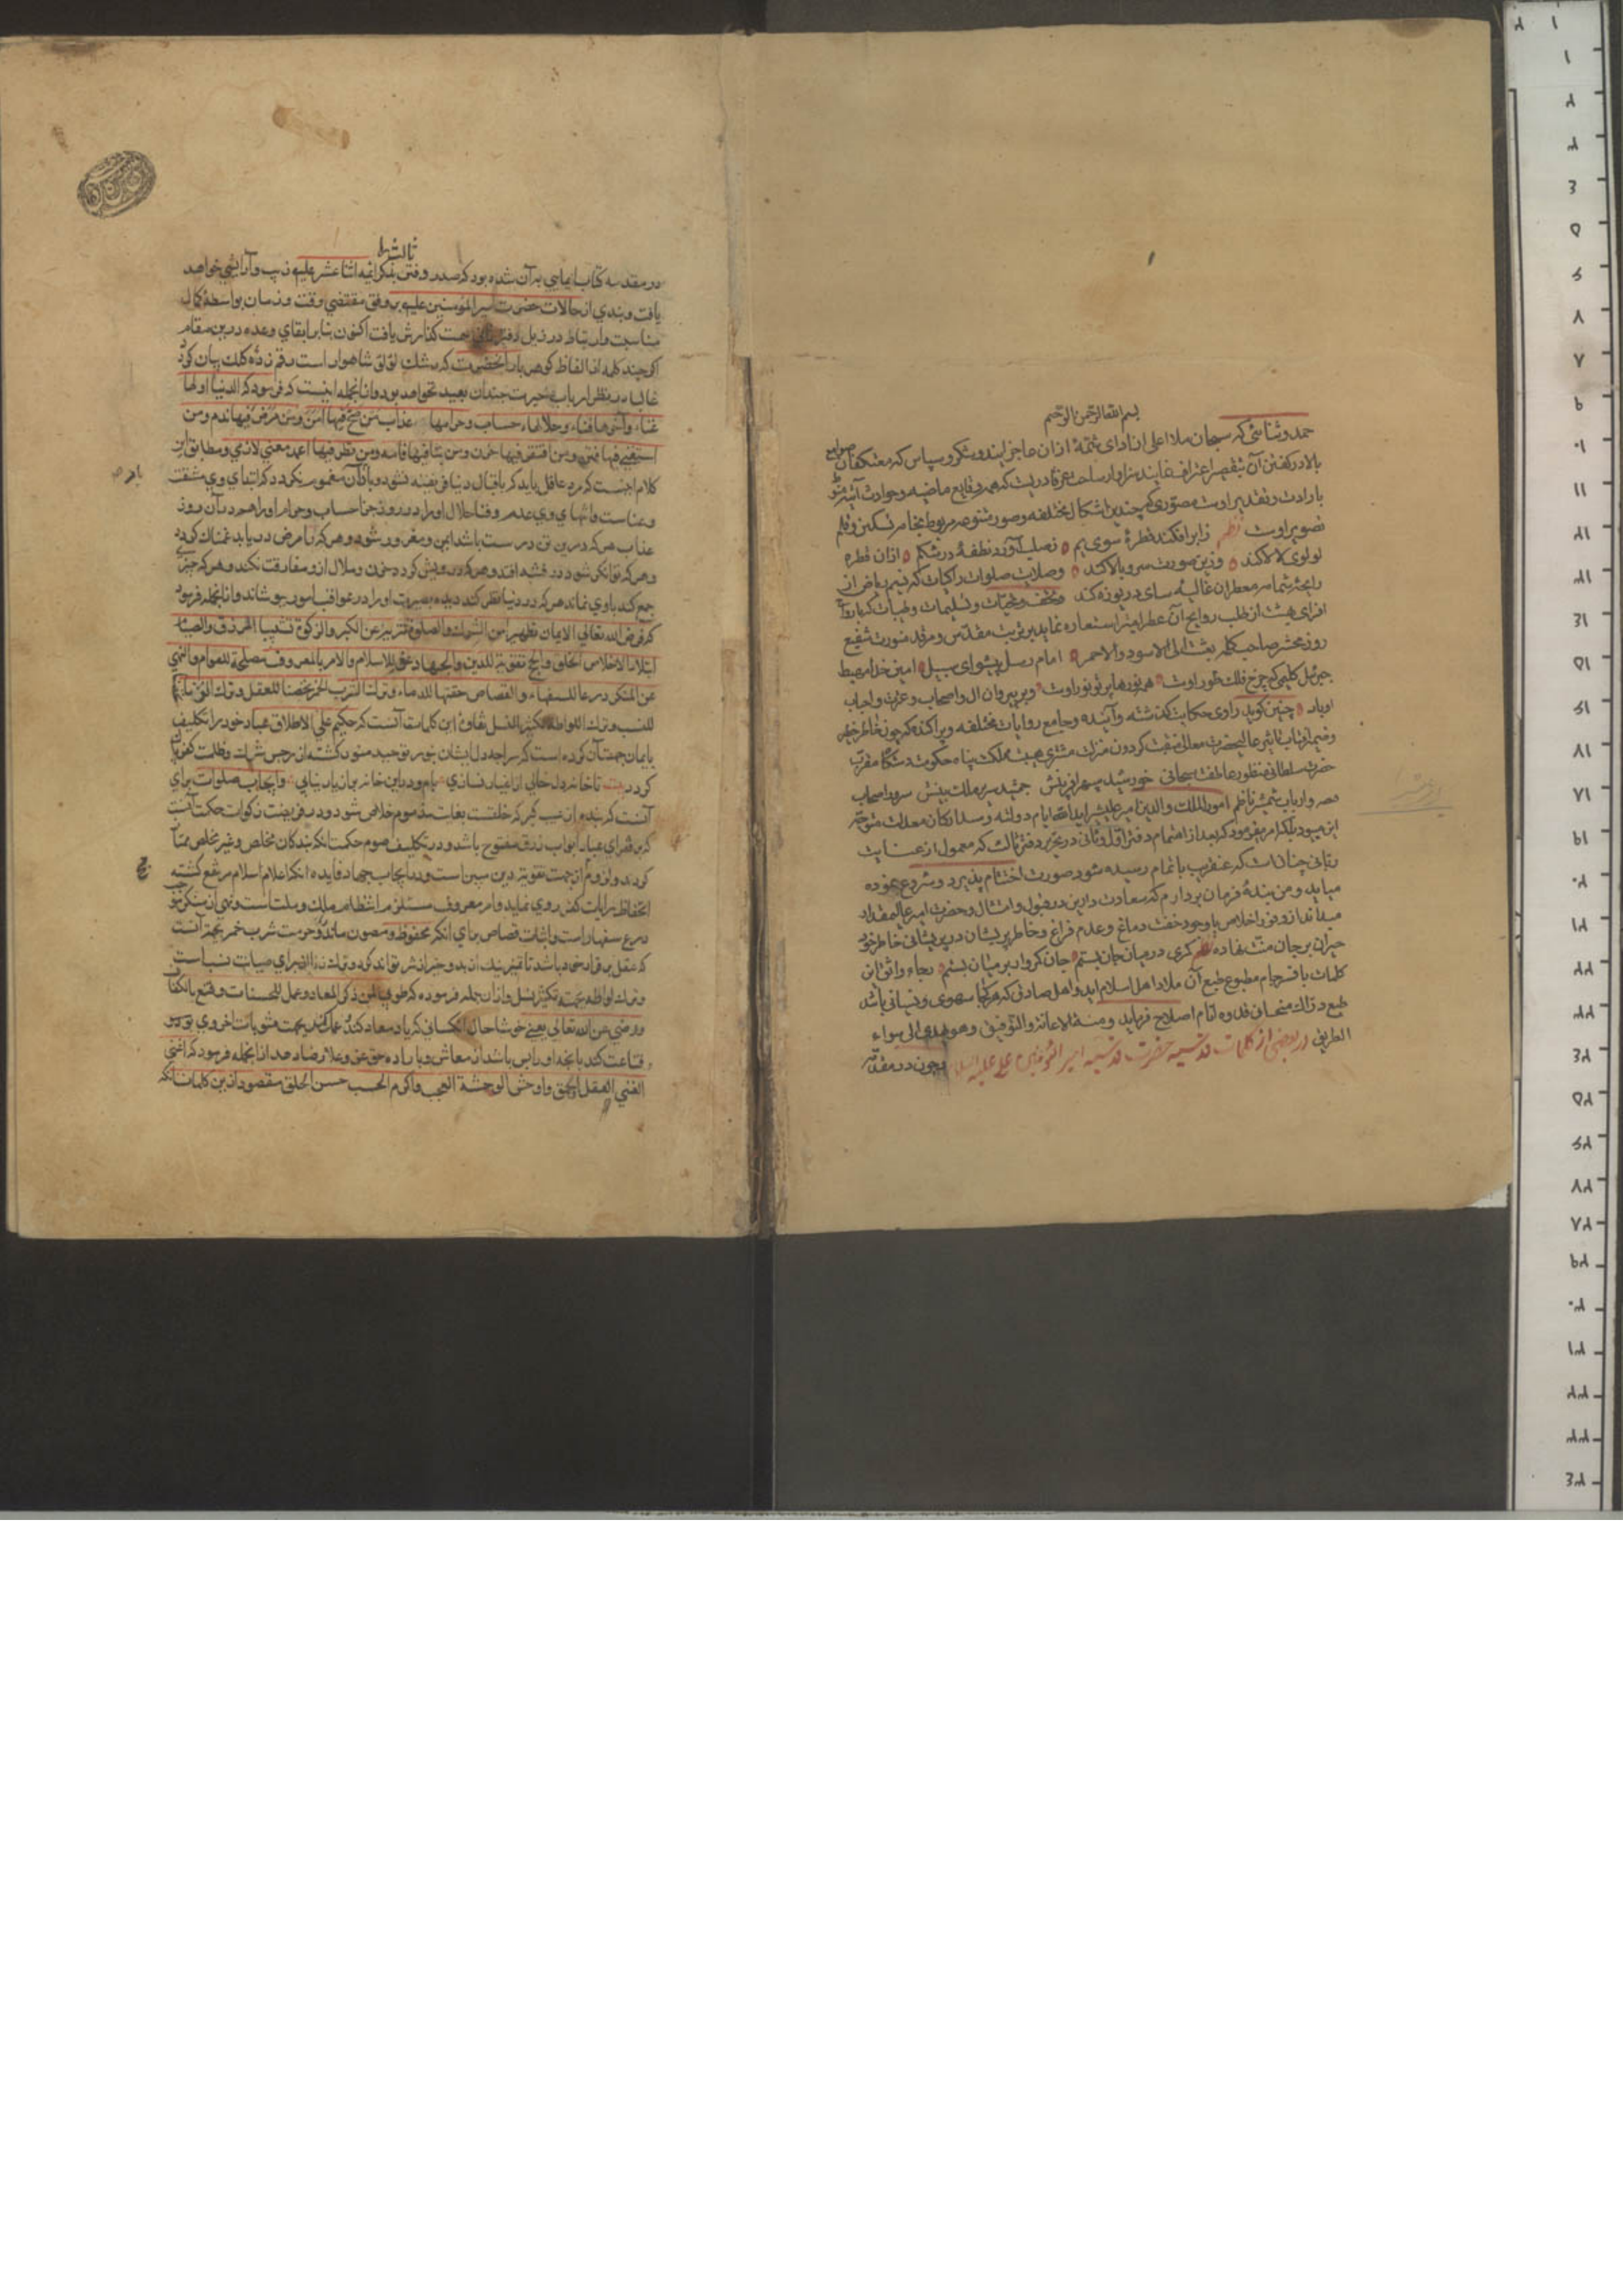 بسم الله الرحمن الرحیم
حمد و ثنائی که سبحان ملاء اعلی از ادای شمّهٔ ازان عاجز ایند و شکر و سپاس که معتکفان صوامع
بالا در گفتن آن بتقصیر اعتراف نمایند سزاوار ساحت عزّ قادریست که همه وقایع ماضیه و حوادث آتیه
بارادت و تقدیر اوست مصوّری که چندین اشکال مختلفه و صور متنوعه مربوط بخامه تسکین و قلم
تصویر اوست نظم ز ابر افکند قطرهٔ سوی یم ز صلب آورد نطفهٔ در شکم ازان قطره
لولوی لالا کند وزین صورت سرو بالا کند وصلات صلوات زاکیات که نسیم ریاض از
رایحه شمامه معطر ان غالیه سای دریوزه کند و تحف و تحیات و تسلیمات وطیبات که
افزای بهشت از طلب روایح آن عطرامیز استعاره نماید بر تربت مقدس و مرقد منورت شفیع
روز محشر صاحب کلمه بعثت الی الاسود والاحمر امام رسل پیشوای سبیل امین خدا مهبط
جبرئیل کلیمی که چرخ فلک طور اوست همه نورها پرتو نور اوست و بر پیروان ال و اصحاب و عترت و احباب
او باد چنین گوید راوی حکایت گذشته و آینده و جامع روایات مختلفه و پراکنده که چون خاطر خطیر
و ضمیر عالیحضرت معالی منقبت گردون منزلت مشتری هیبت مملکت پناه حکومت دستگاه مقرّب
حضرت سلطانی منظور عاطفت سبحانی خورشید سپهر افرینش جمشید سریر ملک بینش سرور اصحاب
امور الملک والدین امیر علیشیر ایام دولته
این میبود بلکه امر بفرمود که بعد از اتمام دفتر اول و ثانی در تحریر دفتر ثالث که معمول از عنایت
ربّانی چنان است که عنقریب باتمام رسیده شود صورت اختتام پذیرد و شروع نموده
میاید و من بندهٔ فرمان بردارم که سعادت دارین در قبول و امتثال و حضرت امیر عالیمقدار
میداند از وفور اخلاص باوجود خفت دماغ و عدم فراغ و خاطر پریشان در پریشانی خاطر خود
حیران بر جان منت نهاده نظم کمری در میان جان بستم جان کمر وار بر میان بستم رجاء واثق این
کلمات نافرجام مطبوع طبع آن ملاذ اهل اسلام اید و اهل صادق که هر کجا سهوی و نسیانی باشد
طبع دراک اصلاح فرماید و منه الاعانة والتوفیق وهو الهادی الی سواء
الطریق در بعضی از کلمات قدسیه حضرت قدسیه امیر المؤمنین علی علیه السلام و چون در مقدمه
ثالثها
در مقدمه کتاب ایمایی بر آن شده بود که صدر دفتر بذکر ائمه اثنا عشر علیهم زیب و آرایشی خواهد
یافت و بندی از حالات حضرت امیر المؤمنین علیه بر وفق مقتضی وقت و زمان بواسطهٔ کمال
مناسبت و ارتباط در ذیل دفتر ثانی سمت گذارش یافت اکنون بنابر ایفای وعده درین مقام
اگر چند کلمه از الفاظ گوهربار آنحضرت که رشک لؤلؤ شاهوار است رقم زدهٔ کلک بیان گردد
غالبا در نظر ارباب خبرت چندان بعید نخواهد بود و ازانجمله اینست که فرمود که الدنیا اولها
عناء وآخرها فناء وحلالها حساب وحرامها عذاب من صح فیها امن ومن مرض فیها ندم ومن
استغنی فیها فتن ومن افتقر فیها حزن ومن ساعاها فاتته ومن نظر فیها اعمته معنی لازمی و مطابق این
کلام اینست که مرد عاقل باید که باقبال دنیا فریفته نشود و باز آن مغمور نگردد که ابتدای وی مشقت
و عناست و انتهای وی عدم و فنا حلال او را در روز جزا حساب و حرام او را هم در آن روز
عذاب هر که درین تن درست باشد ایمن و مغرور شود و هر که را مرض دریابد غمناک گردد
و هر که توانگر شود در فتنه افتد و هر که درویش گردد حزن و ملال ازو مفارقت نکند و هر که چیزی
جمع کند با وی نماند هر که در دنیا نظر کند دیده بصیرت او را در عواقب امور بپوشاند و ازانجمله فرمود
که فرض الله تعالی الایمان تطهیرا من الشرک والصلوة تنزیها عن الکبر والزکوة تسبیبا للرزق والصیام
ابتلاء لاخلاص الخلق والحج تقویة للدین والجهاد عزا للاسلام والامر بالمعروف مصلحة للعوام والنهی
عن المنکر ردعا للسفهاء والقصاص حقنا للدماء وترک شرب الخمر تحصینا للعقل وترک الزنا
للنسب وترک اللواطة تکثیرا للنسل تفاوت این کلمات آنست که حکیم علی الاطلاق عباد خود را تکلیف
بایمان جهت آن کرده است که مراجه دل ایشان بنور توحید منور گشته از رجس شرک و ظلمت کفر پاک
گردد بیت تا خانه دل خالی از اغیار نسازی بام و در این خانه پر از یار نیابی و ایجاب صلوات برای
آنست که بنده از عیب کبر که خلقتست بغایت مذموم خلاص شود و در فرضیت زکوات حکمت آنست
که بر فقرای عباد ابواب رزق مفتوح باشد و در تکلیف صوم حکمت آنکه بندکان مخلص و غیر مخلص ممتاز
کردند و لزوم از جهت تقویت دین مبین است و در ایجاب جهاد فایده آنکه اعلام اسلام مرتفع گشته
انخفاظ برایات کفر روی نماید و امر معروف مستلزم انتظام ملک و ملت است و نهی از منکر موجب
درع سفهاء است و اثبات قصاص برای آنکه محفوظ و مصون ماند و حرمت شرب خمر بجهة آنست
که عقل بر قرار خود باشد تا تمیز نیک از بد و خیر از شر تواند کرد و ترک زنا از برای صیانت نسب است
و ترک لواطه بجهة تکثیر نسل و ازان جمله فرموده که طوبی لمن ذکر المعاد وعمل للحسنات وقنع بالکفاف
ورضی عن الله تعالی یعنی خوشا حال آنکسانی که یاد معاد کنند و عمل کنند بجهت مثوبات اخروی بود و
قناعت کند بآنچه او را بس باشد از معاش و باراده حق عز وعلا رضا دهد ازانجمله فرمود که اغنی
الغنی العقل واوحش الوحشة العجب واکرم الحسب حسن الخلق مقصود ازین کلمات آنکه